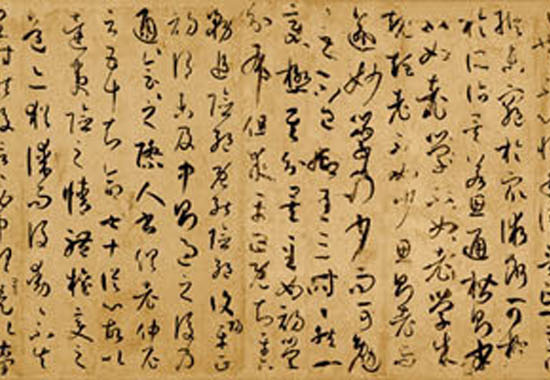 縱未窮於眾術斷可極
於所詣矣若思通楷則少
不如老學不如老學成
規矩老不如少思則老而
逾妙學乃少而可勉
勉之不已抑有三時時然一
變極其分矣至如初學
分布但求平正既知平正
務追險絕既能險絕復歸平正
初謂未及中則過之後乃
通會通會之際人書俱老仲尼
云五十知命七十從心故以
達夷險之情體權變之
道亦猶謀而後動動不失
宜時然後言言必中理矣